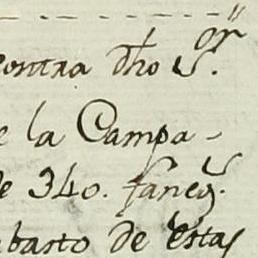 contra dho S.or
e la Campa-
e 340. faneg.s
basto de estas